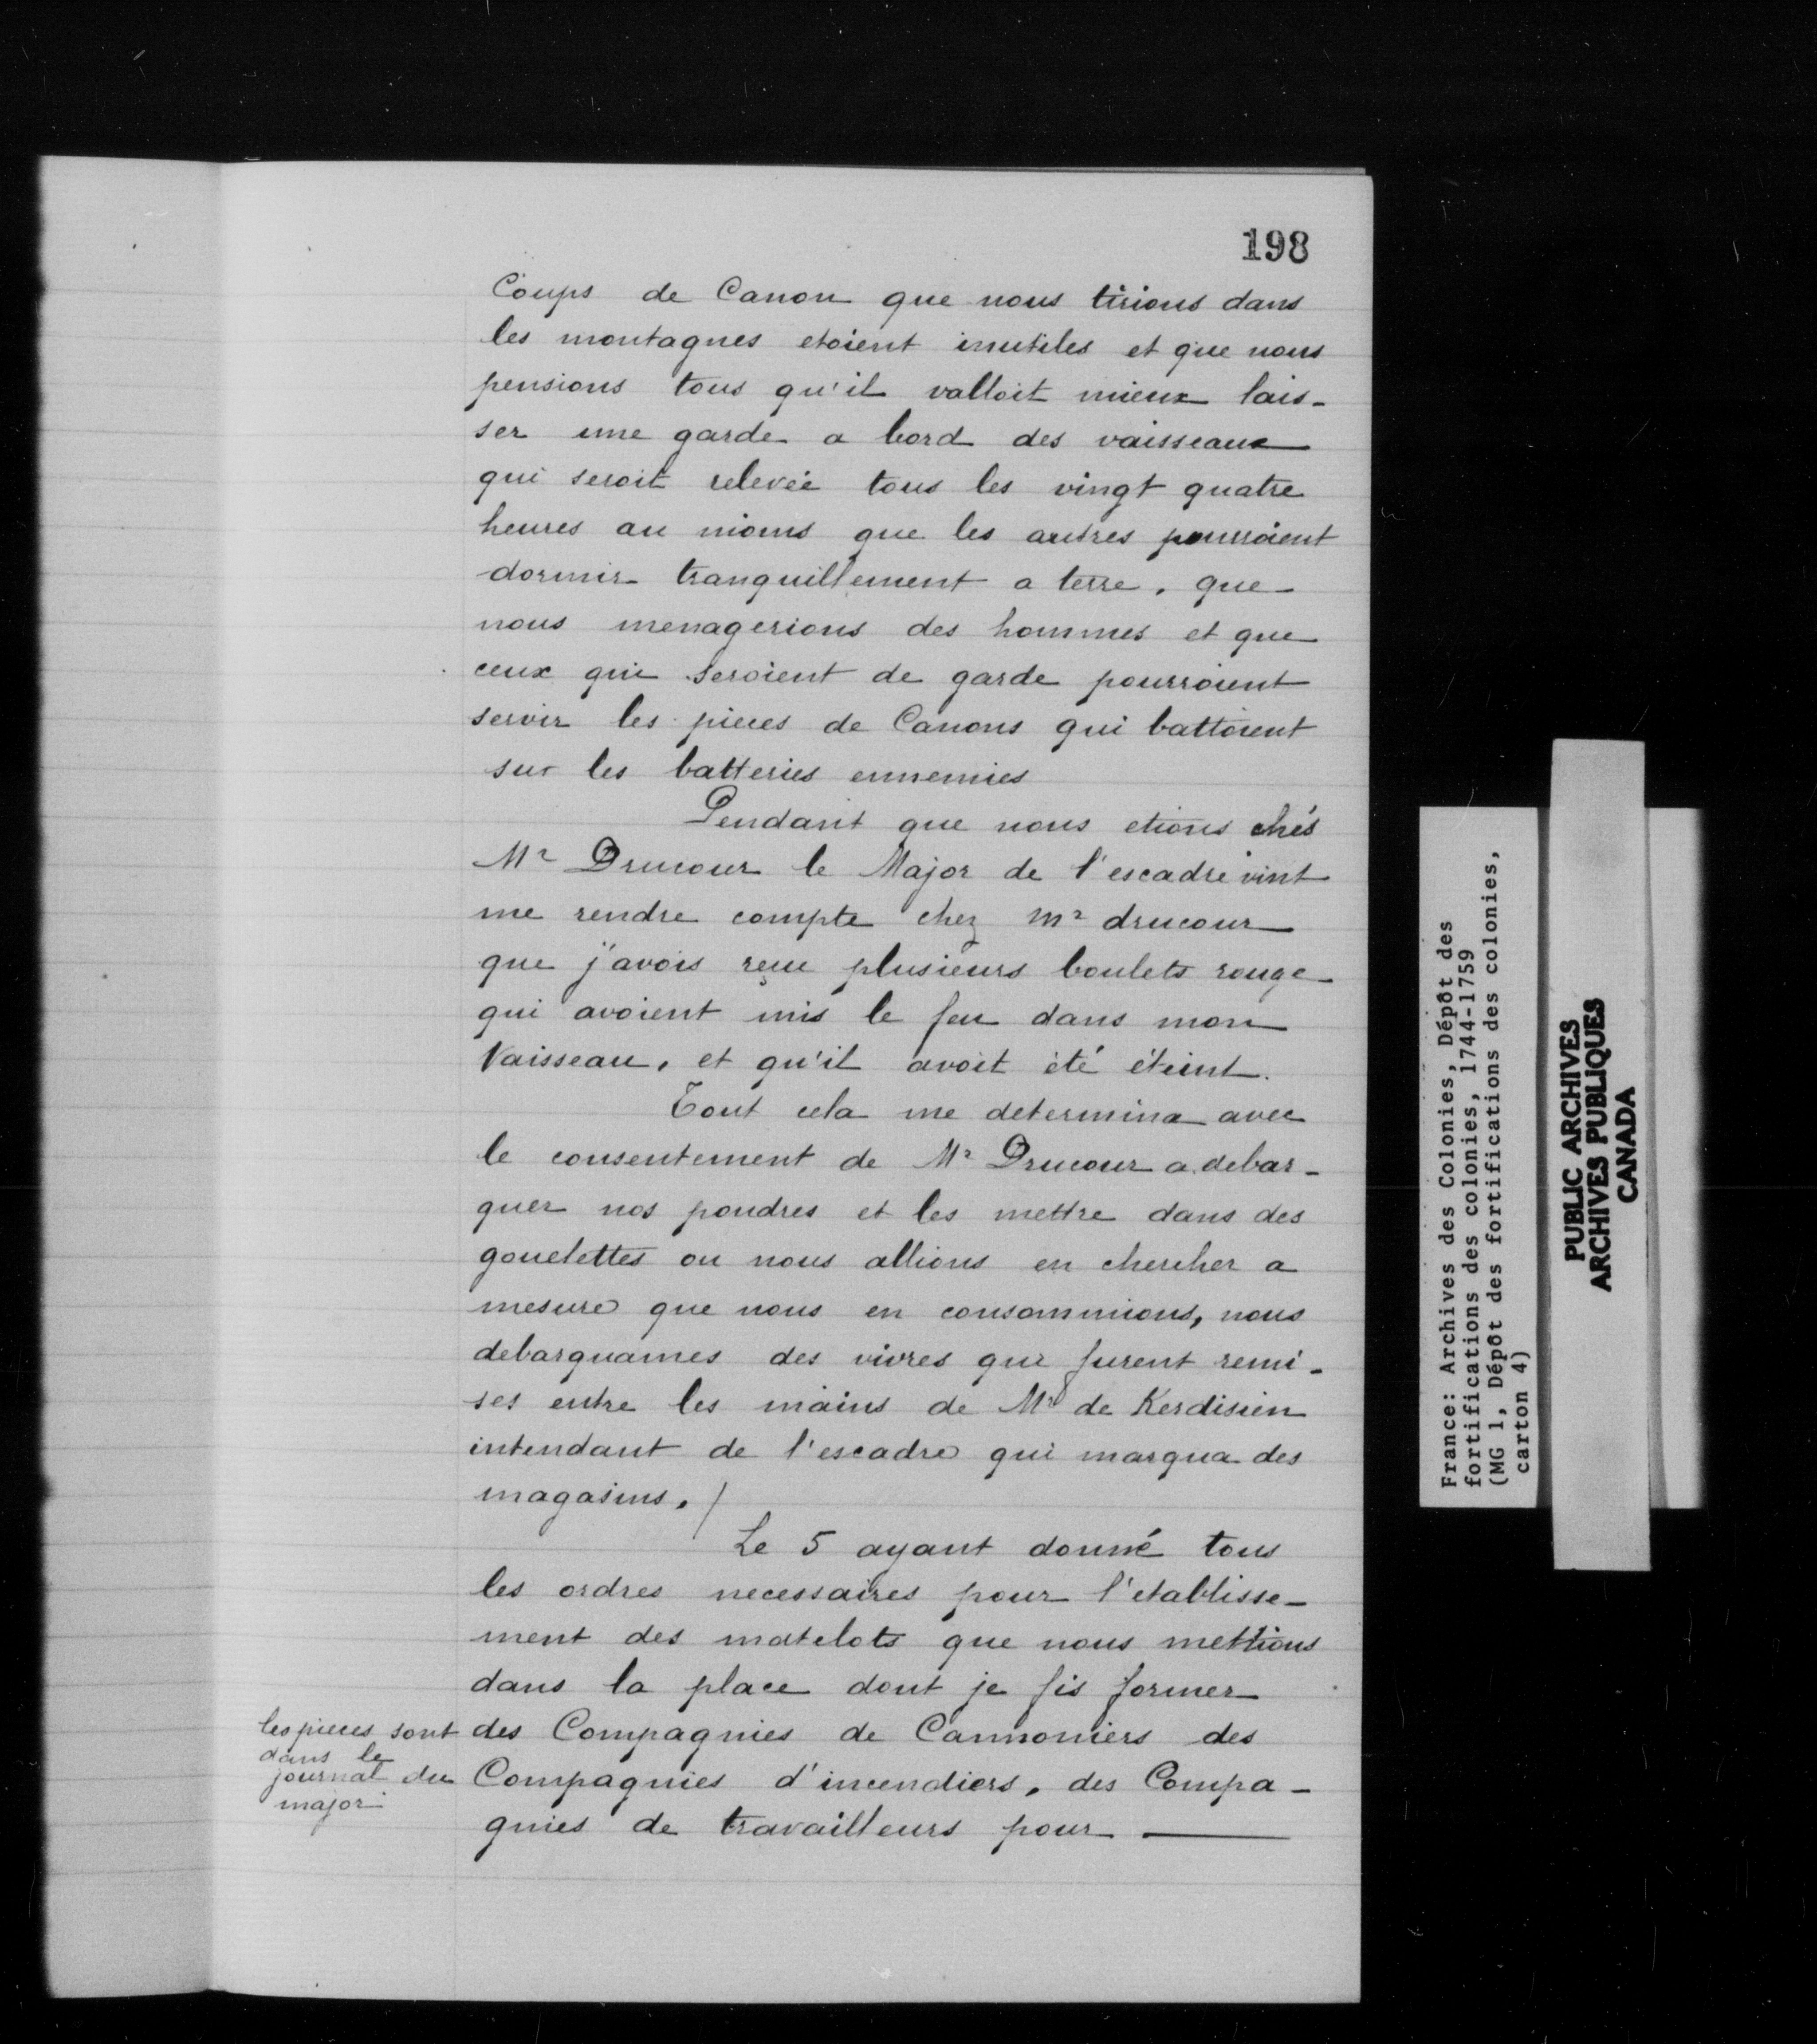 198
Coups de Canon que nous tirions dans
les montagnes etoient inutiles et que nous
pensions tous qu'il valloit mieux lais-
ser une garde a bord des vaisseaux
qui seroit relevée tous les vingt quatre
heures au moins que les autres pourroient
dormir tranquillement a terre. que
nous menagerions des hommes et que
ceux qui seroient de garde pourroient
servir les pieces de Canons qui battoient
sur les batteries ennemies
Pendant que nous etions chés
Mr Drucour le Major de l'escadre vint
me rendre compte chez mr drucour
que j'avois reçu plusieurs boulets rouge
qui avoient mis le feu dans mon
Vaisseau, et qu'il avoit été éteint.
Tout cela me determina avec
le consentement de Mr Drucour a debar-
quer nos poudres et les mettre dans des
gouelettes ou nous allions en chercher a
mesure que nous en consommions, nous
debarquames des vivres qui furent remi-
ses entre les mains de Mr de Kerdisien
intendant de l'escadre qui marqua des
magasins. /
Le 5 ayant donné tous
les ordres necessaires pour l'etablisse-
ment des matelots que nous mettions
dans la place dont je fis former
des Compagnies de Cannoniers des
Compagnies d'incendiers, des Compa-
gnies de travailleurs pour —
les pieces sont
dans le
journal du
major
France: Archives des Colonies, Dépôt des
fortifications des colonies, 1744-1759
(MG 1, Dépôt des fortifications des colonies,
carton 4)
PUBLIC ARCHIVES
ARCHIVES PUBLIQUES
CANADA